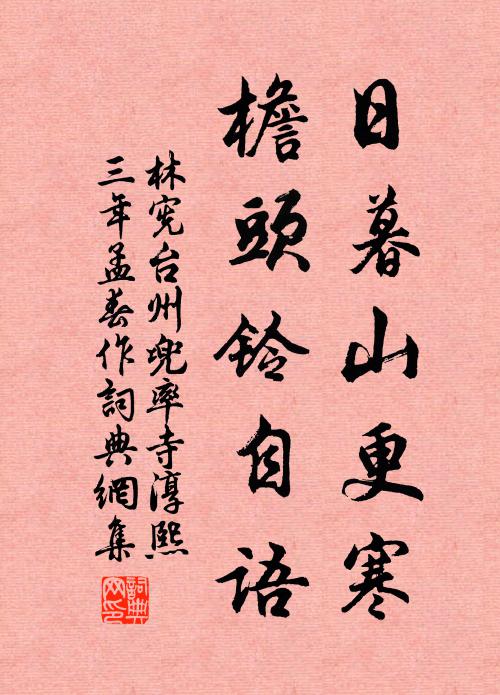 日暮山更寒
檐頭鈴自語
林宪台州兜率寺淳熙
三年孟春作詞典網集
詞典
网印